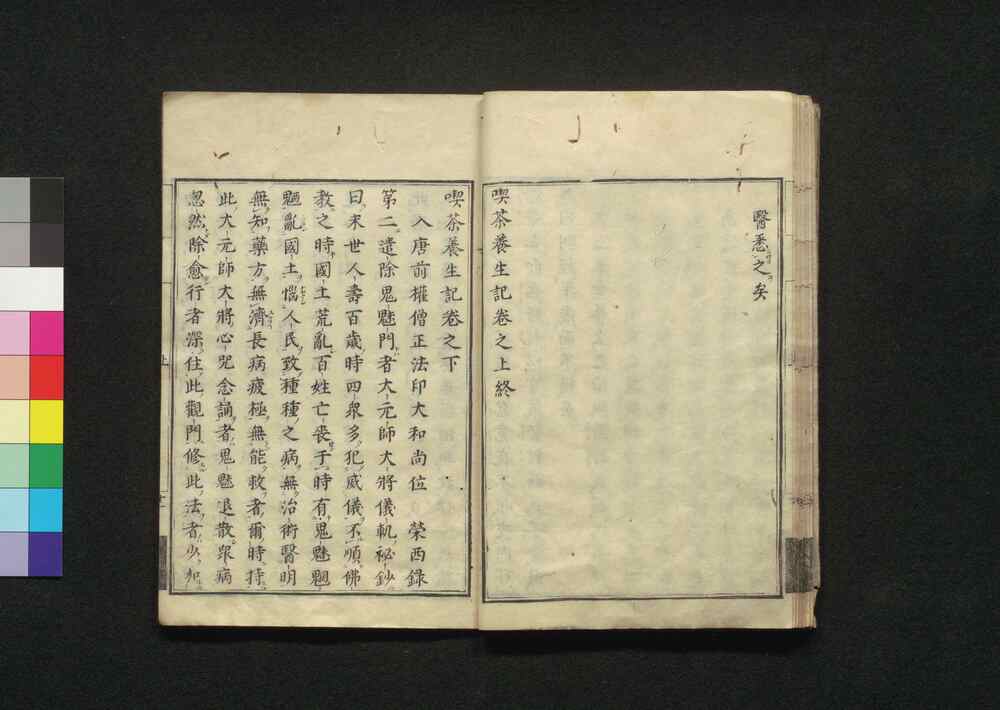 醫悉之矣
喫茶養生記卷之上終
喫茶養生記卷之下
入唐前權僧正法印大和尚位 榮西錄
第二遣除鬼魅門者大元師大將儀軌祕鈔
曰末世人壽百歲時四眾多犯威儀不順佛
教之時國土荒亂百姓亡喪于時有鬼魅魍
魎亂國土惱人民致種種之病無治術醫明
無知藥方無濟長病疲極無能救者爾時持
此大元師大將心咒念誦者鬼魅退散眾病
忽然除愈行者深住此觀門修此法者少加